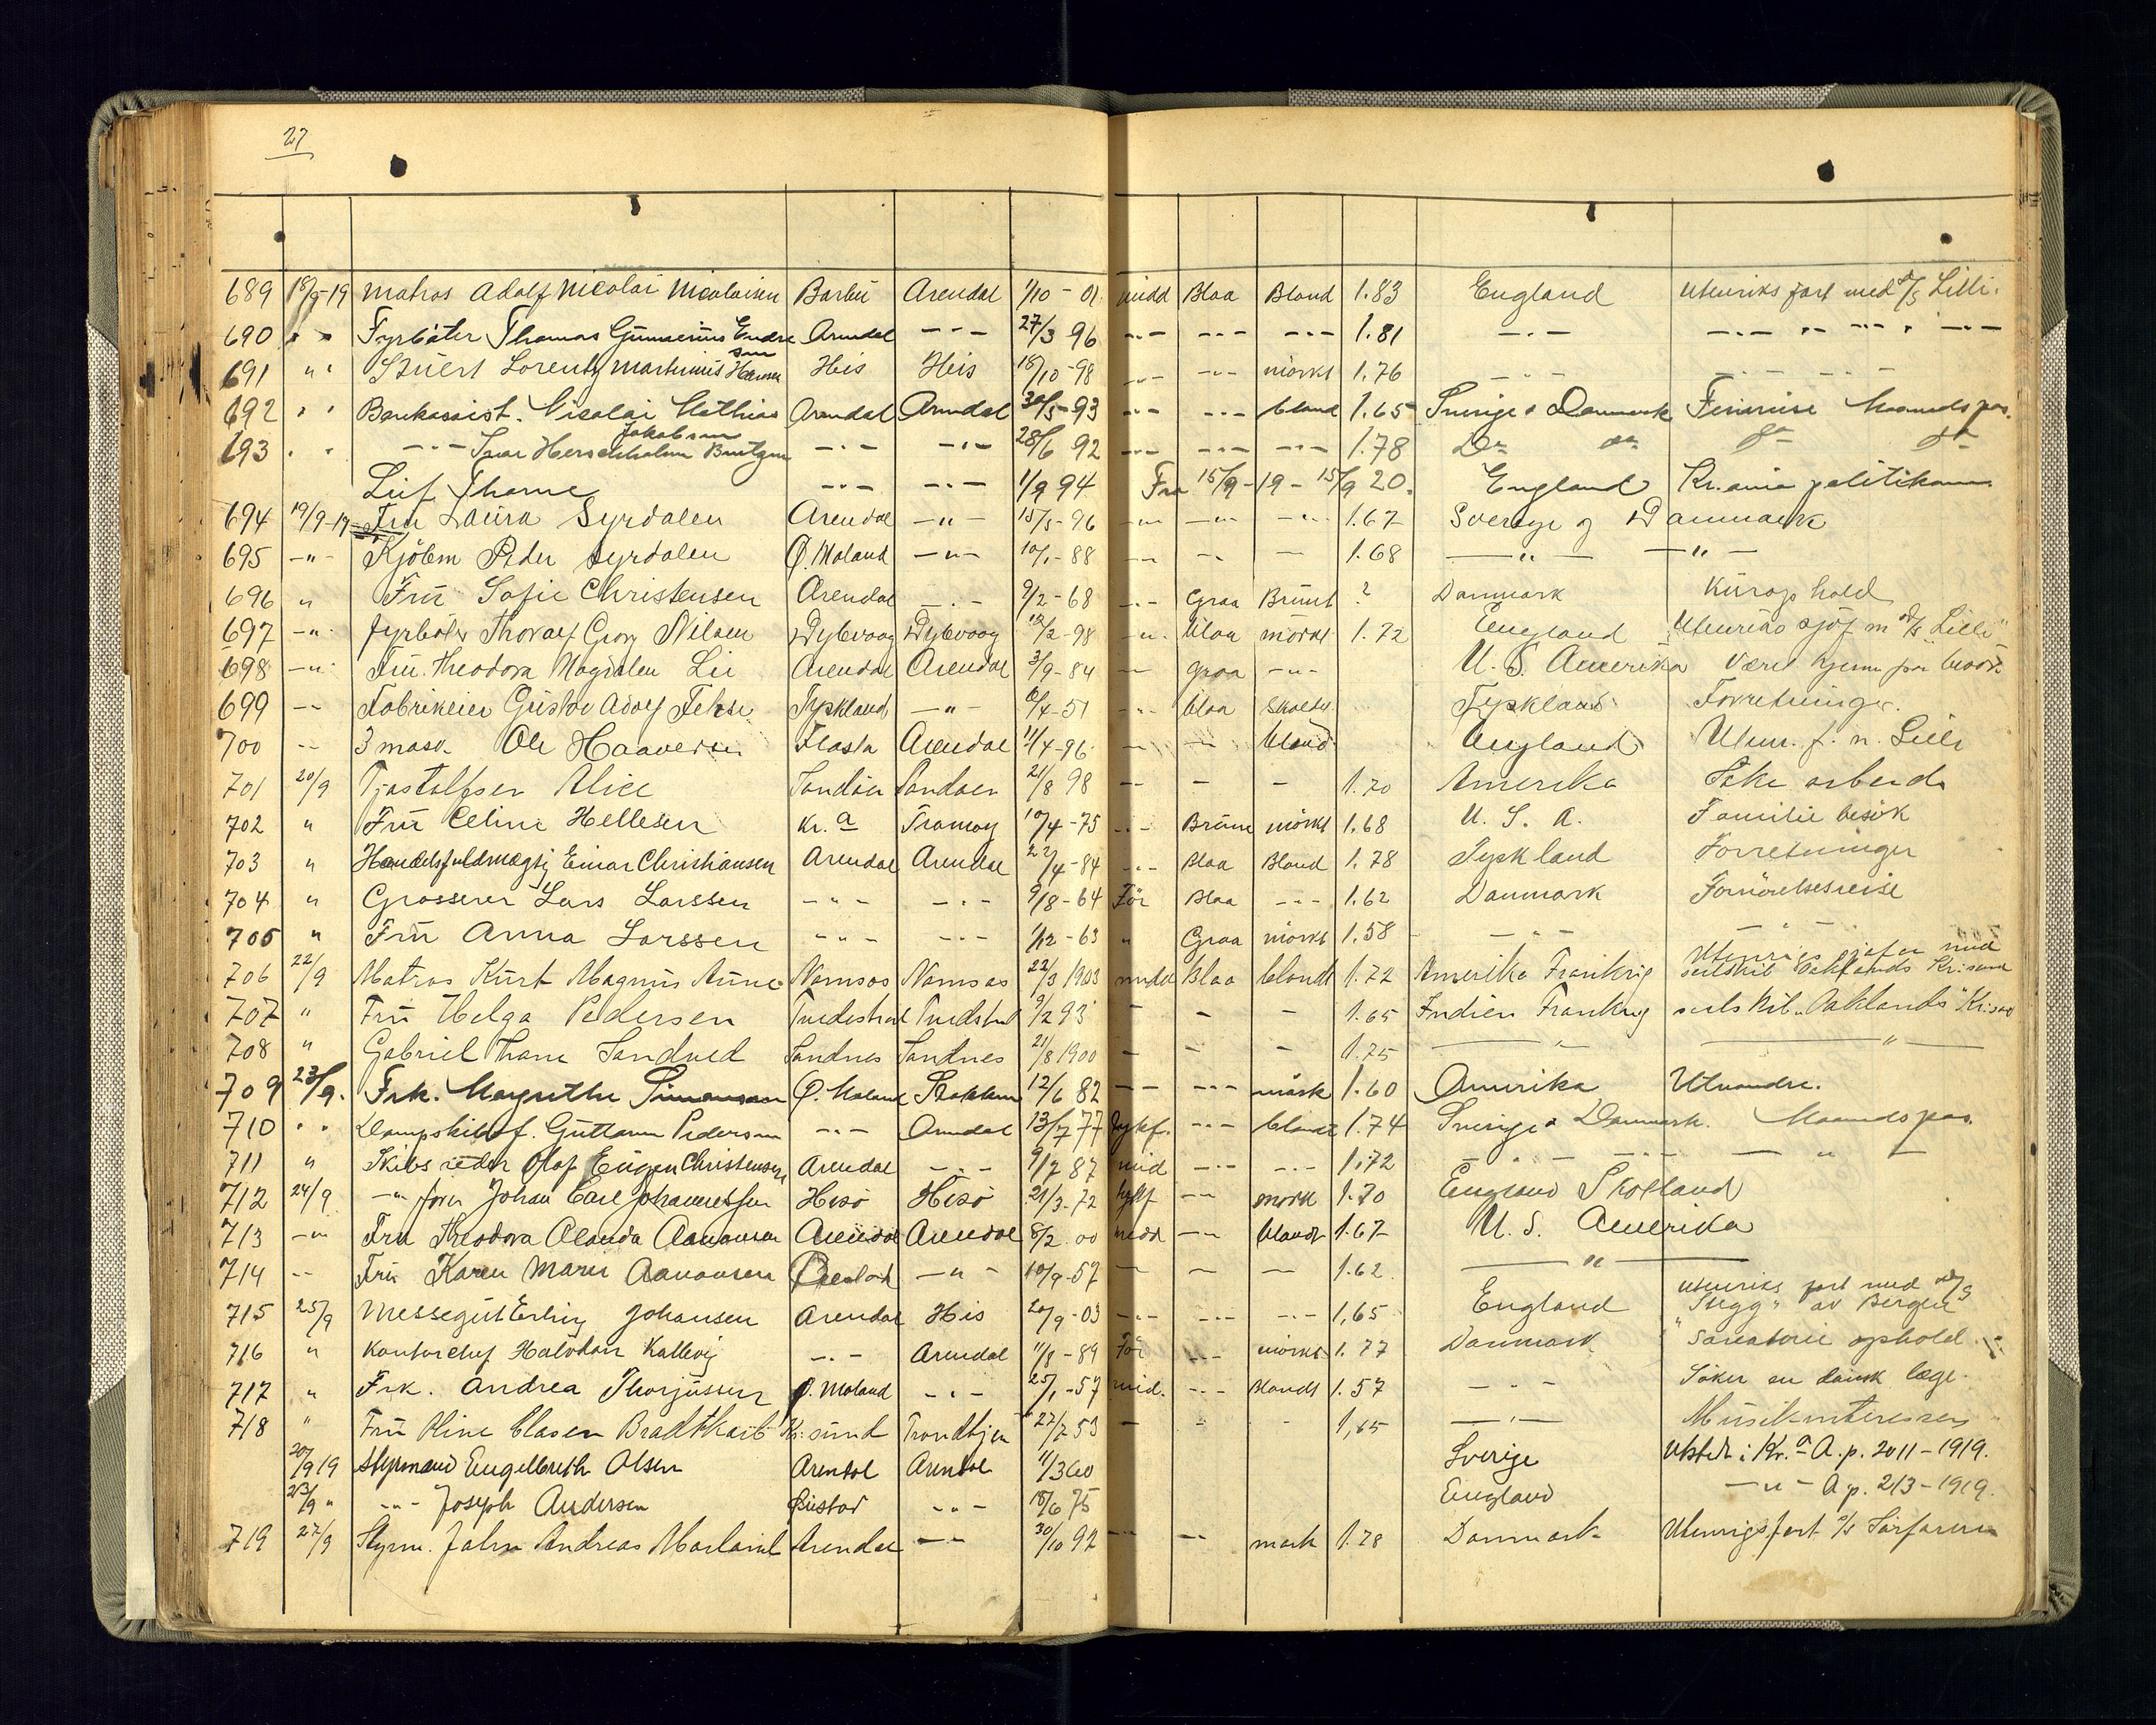 27
689 18/9-19 Matros Adolf Nicolai Nicolaisen Barbu Arendal 1/10-01 midd Blaa Blond 1.83 England Utenriks fart med D/S Lilli.
690 " " Fyrbøter Thomas Gunnerius Endresen Arendal -"- 27/3 96 -"- -"- -"- 1.81 -"- -"- " -"- " -"-
691 " " Stuert Lorentz Martinius Hansen His His 18/10-98 -"- -"- mörkt 1.76 -"- -"-
692 " " Bankassist. Nicolai Mathias Arendal Arendal 30/5-93 -"- -"- blond 1.65 Sverige & Danmark Ferireise Maanedspas.
Jakobsen
693 " " -"- Ivar Herschholm Bentzen -"- -"- 28/6 92 -"- -"- -"- 1.78 Do do do do
Leif Thorne -"- -"- 1/9 94 Fra 15/9-19 - 15/9 20. England Kr.ania politikam
694 19/9-19 Fru Laura Syrdalen Arendal -"- 15/5-96 -"- -"- -"- 1.67 Sverige og Danmark
695 -"- Kjöbm Peder Syrdalen Ø. Moland -"- 10/1-88 -"- -"- - 1.68 -"- -"-
696 " Fru Sofie Christensen Arendal -"- 9/2-68 -"- Graa Brunt ? Danmark Kurophold
697 -"- Fyrböter Thoralf Georg Nilsen Dybvaag Dybvaag 12/2-98 -"- blaa mörkt 1.72 England Utenriks sjöf m D/S Lilli"
698 -"- Fru Theodora Magdalen Lie Arendal Arendal 3/9-84 - graa -"- U. S. Amerika Været hjemme paa besøk
699 -"- Fabrikeier Gustav Adolf Fehse Tyskland -"- 6/4-51 -"- blaa Skaldet Tyskland Forretninger.
700 -"- 3 mask Ole Haaversen Flosta Arendal 11/4-96 - - blond England Utenr. f. m. Lilli
701 20/9 Tjostolfsen Alice Sandöen Sandöen 21/8 98 - - - 1.70 Amerika Söke arbeide
702 " Fru Celine Hellesen Kr.a Tromoy 10/4-75 -"- Brune mörkt 1.68 U. S. A. Familie besök
703 " Handelsfuldmægtig Einar Christiansen Arendal Arendal 22/4-84 -"- Blaa Blond 1.78 Tyskland Forretninger
704 " Grosserer Lars Larssen -"- -"- 9/8-64 För Blaa -"- 1.62 Danmark Fornöielsesreise
705 " Fru Anna Larssen -"- -"- 1/12-63 " Graa mörkt 1.58 -"- -"-
706 22/9 Matros Kurt Magnus Aune Namsos Namsos 22/3 1903 midd Blaa blondt 1.72 Amerika Frankrig Utenrigs sjøfar med seilskib Oaklands Kr:sand
707 " Fru Helga Pedersen Tvedestrand Tvedestrand 9/2 93 - - - 1.65 Indien Frankrig seilskib "Oaklands" Kr:sand
708 " Gabriel Sandved Sandnes Sandnes 21/8 1900 - - - 1.75 -"- -"-
709 23/9. Frk. Margrethe Simonsen Ø. Moland Stokken 12/6 82 -"- -"- mörk 1.60 Amerika Utvandre.
710 " " Dampskibsf. Guttorm Pedersen -"- Arendal 13/7 77 tykf. -"- blondt 1.74 Sverige & Danmark. Maanedspas.
711 " Skibsreder Olaf Eugen Christensen Arendal -"- 9/7 87 mid -"- -"- 1.72 -"- -"- - " -
712 24/9 -"- förer Johan Carl Johannessen Hisö Hisö 21/3-72 tykf -"- mörk 1.70 England Skotland
713 -"- Fru Theodora Olanda Aanonsen Arendal Arendal 8/2 00 midd -"- blondt 1.67 U. S. Amerika
714 -"- Fru Karen Marie Aanonsen -"- 10/9-57 - - - 1.62 -"-
715 25/9 Messegut Erling Johansen Arendal His 20/9-03 -"- -"- -"- 1,65 England utenriks fart med D/S "Stegg" av Bergen
716 " Kontorchef Halvdan Kallevig -"- Arendal 11/8-89 För -"- mörkt 1.77 Danmark Sanatorie ophold
717 " Frk. Andrea Thorjussen Ø. Moland -"- 25/1-57 mid. -"- Blondt 1.57 -"- Söker en dansk læge.
718 " Fru Oline Clasen Kr:sund Trondhjem 27/7 53 - - - 1,65 -"- Musikinteresser
20/9 19 Styrmand Engelbreth Olsen Arendal Arendal 11/3 60 Sverige Utstedt i Kr.a A.p. 2011-1919.
23/9 " -"- Joseph Andersen -"- 18/6 75 England -"- A p. 213-1919.
719 27/9 Styrm. John Andreas Marland Arendal -"- 30/10 92 -"- -"- mörk 1.78 Danmark Utenrigsfart S/S Sörfareren